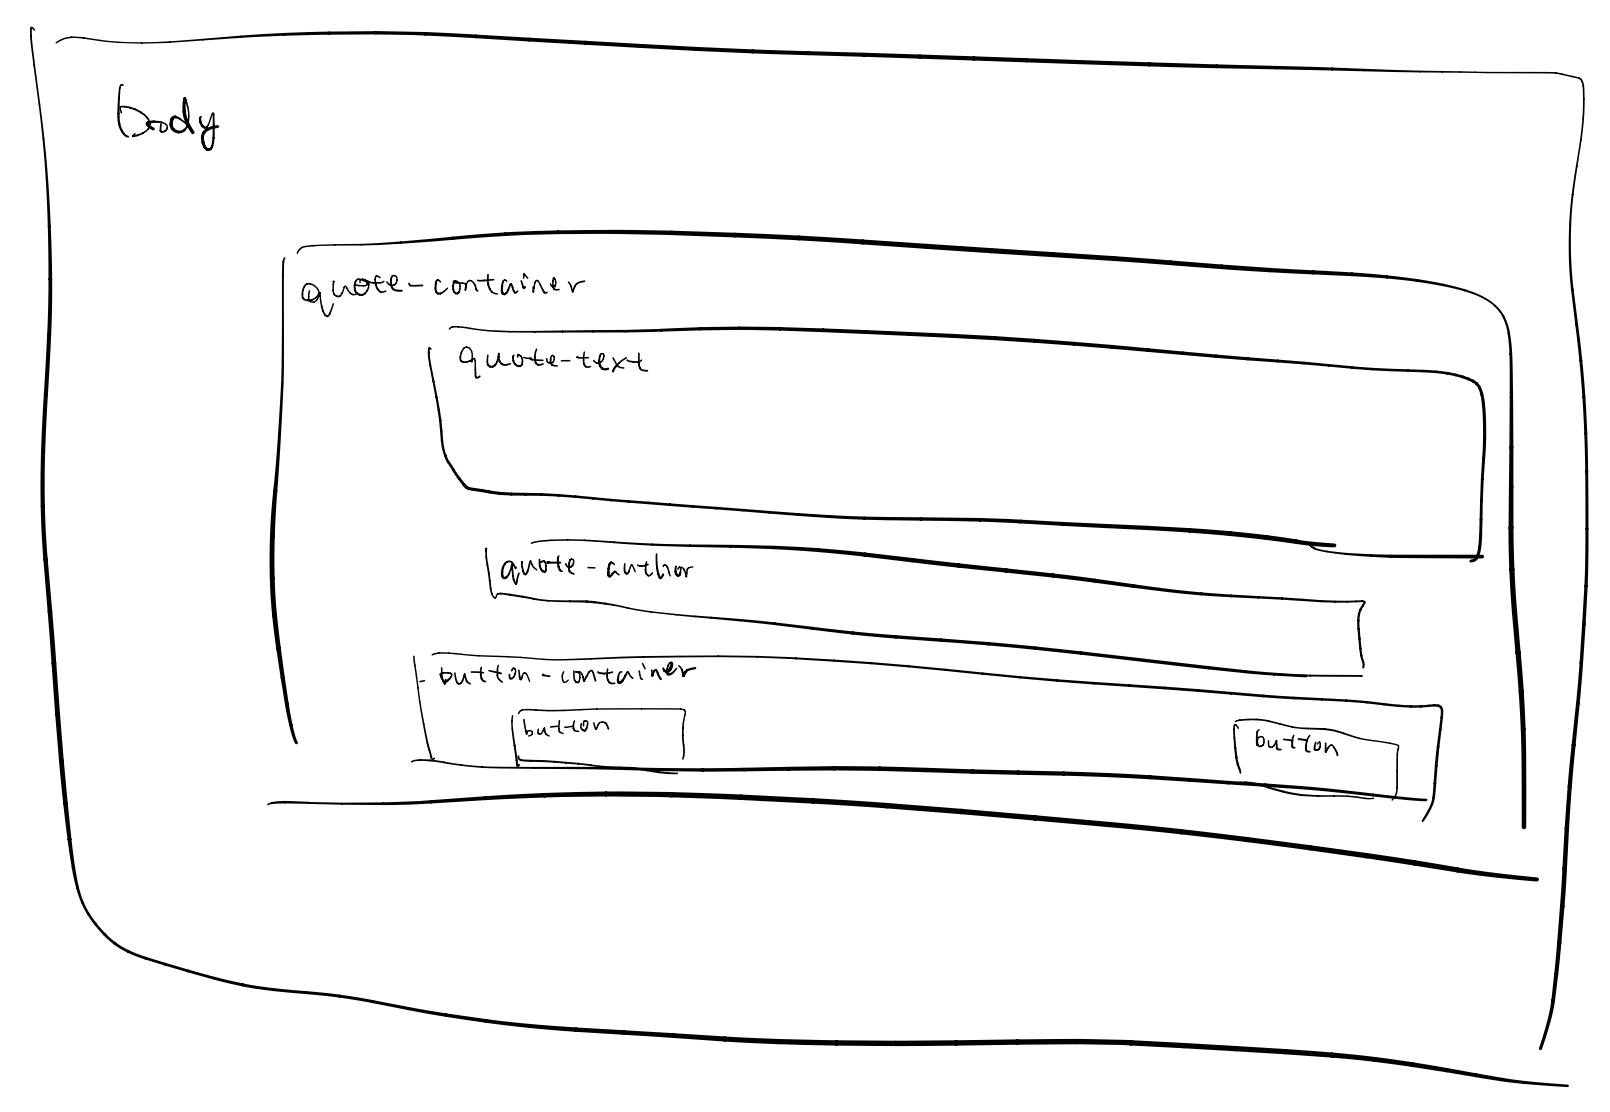 body
quote-container
quote-text
quote-author
button-container
button
button